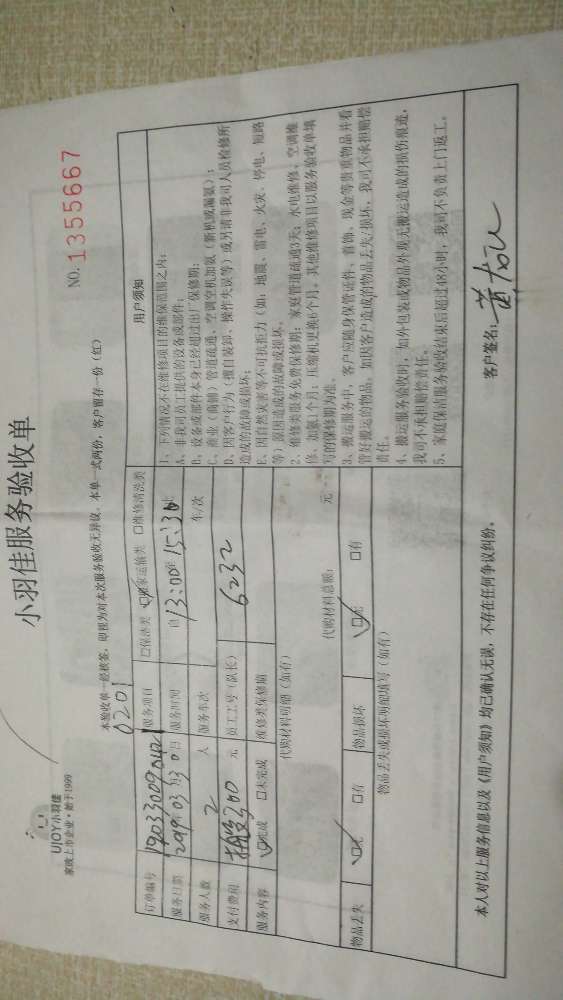 UJOY小羽佳
家政上市企业·始于1999
小羽佳服务验收单
NO. 1355667
本验收单一经核签，即视为对本次服务验收无异议。本单一式两份，客户留存一份（红）
0201
订单编号
服务项目 □保洁类 □搬家运输类 □维修清洗类
服务日期 2019年03月30日 服务时间 自13:00至15:30止
服务人数 2 人 服务车次 车/次
支付费用 300 元 员工工号（队长） 6232
服务内容 □完成 □未完成 维修类保修期
代购材料明细（如有）
代购材料总额： 元
物品丢失 □无 □有 物品损坏 □无 □有
物品丢失或损坏明配填写（如有）
用户须知
1、下列情况不在维修项目的维保范围之内：
A、非我司员工提供的设备或部件；
B、设备或部件本身已经超过出厂保修期；
C、商业（商铺）管道疏通、空调空机加氨（新机或漏氨）；
D、因客户行为（擅自装卸、操作失误等）或另请非我司人员检修所
造成的故障或损坏；
E、因自然灾害等不可抗拒力（如：地震、雷电、火灾、停电、短路
等）原因造成的故障或损坏。
2、维修类服务免费保修期：家庭管道疏通3天；水电维修、空调维
修、加氨1个月；压缩机更换6个月。其他维修项目以服务验收单填
写的保修期为准。
3、搬运服务中，客户应随身保管证件、首饰、现金等贵重物品并看
管好搬运的物品，如因客户造成的物品丢失/损坏，我司不承担赔偿
责任。
4、搬运服务验收时，如外包装或物品外观无搬运造成的损伤痕迹，
我司不承担赔偿责任。
5、家庭保洁服务验收结束后超过48小时，我司不负责上门返工。
本人对以上服务信息以及《用户须知》均已确认无误，不存在任何争议纠纷。
客户签名：